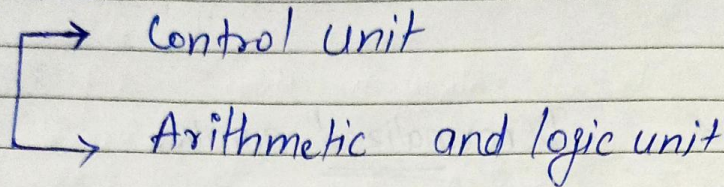 Control unit
Arithmetic and logic unit